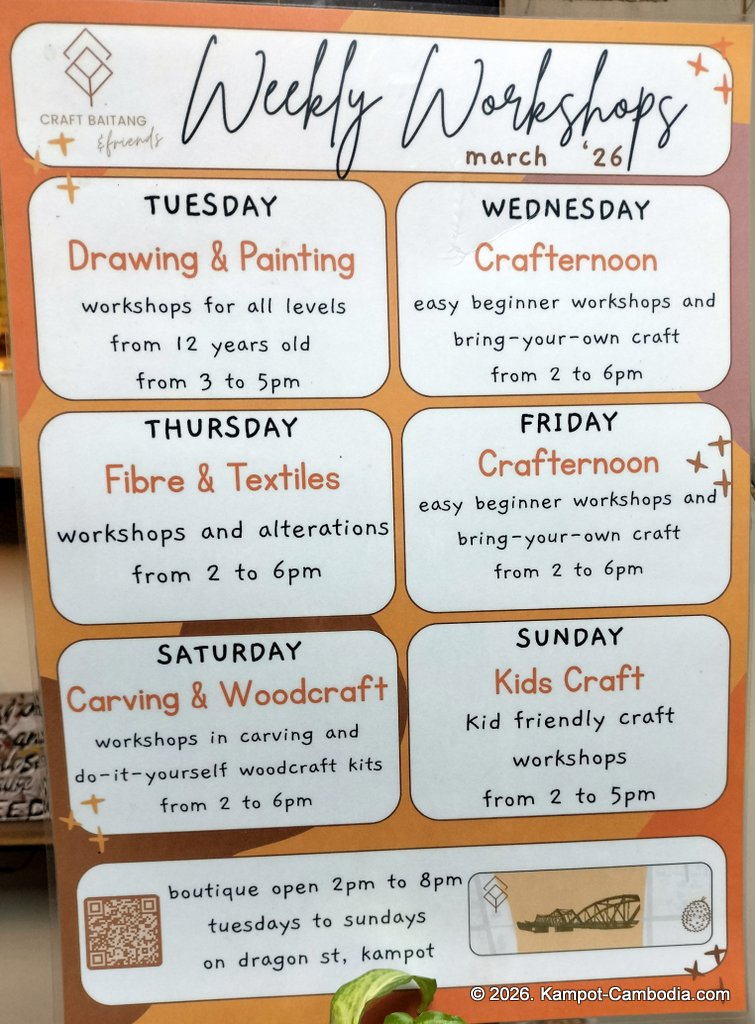 CRAFT BAITANG
&friends
Weekly Workshops
march '26
TUESDAY
Drawing & Painting
workshops for all levels
from 12 years old
from 3 to 5pm
WEDNESDAY
Crafternoon
easy beginner workshops and
bring-your-own craft
from 2 to 6pm
THURSDAY
Fibre & Textiles
workshops and alterations
from 2 to 6pm
FRIDAY
Crafternoon
easy beginner workshops and
bring-your-own craft
from 2 to 6pm
SATURDAY
Carving & Woodcraft
workshops in carving and
do-it-yourself woodcraft kits
from 2 to 6pm
SUNDAY
Kids Craft
Kid friendly craft
workshops
from 2 to 5pm
boutique open 2pm to 8pm
tuesdays to sundays
on dragon st, kampot
© 2026. Kampot-Cambodia.com